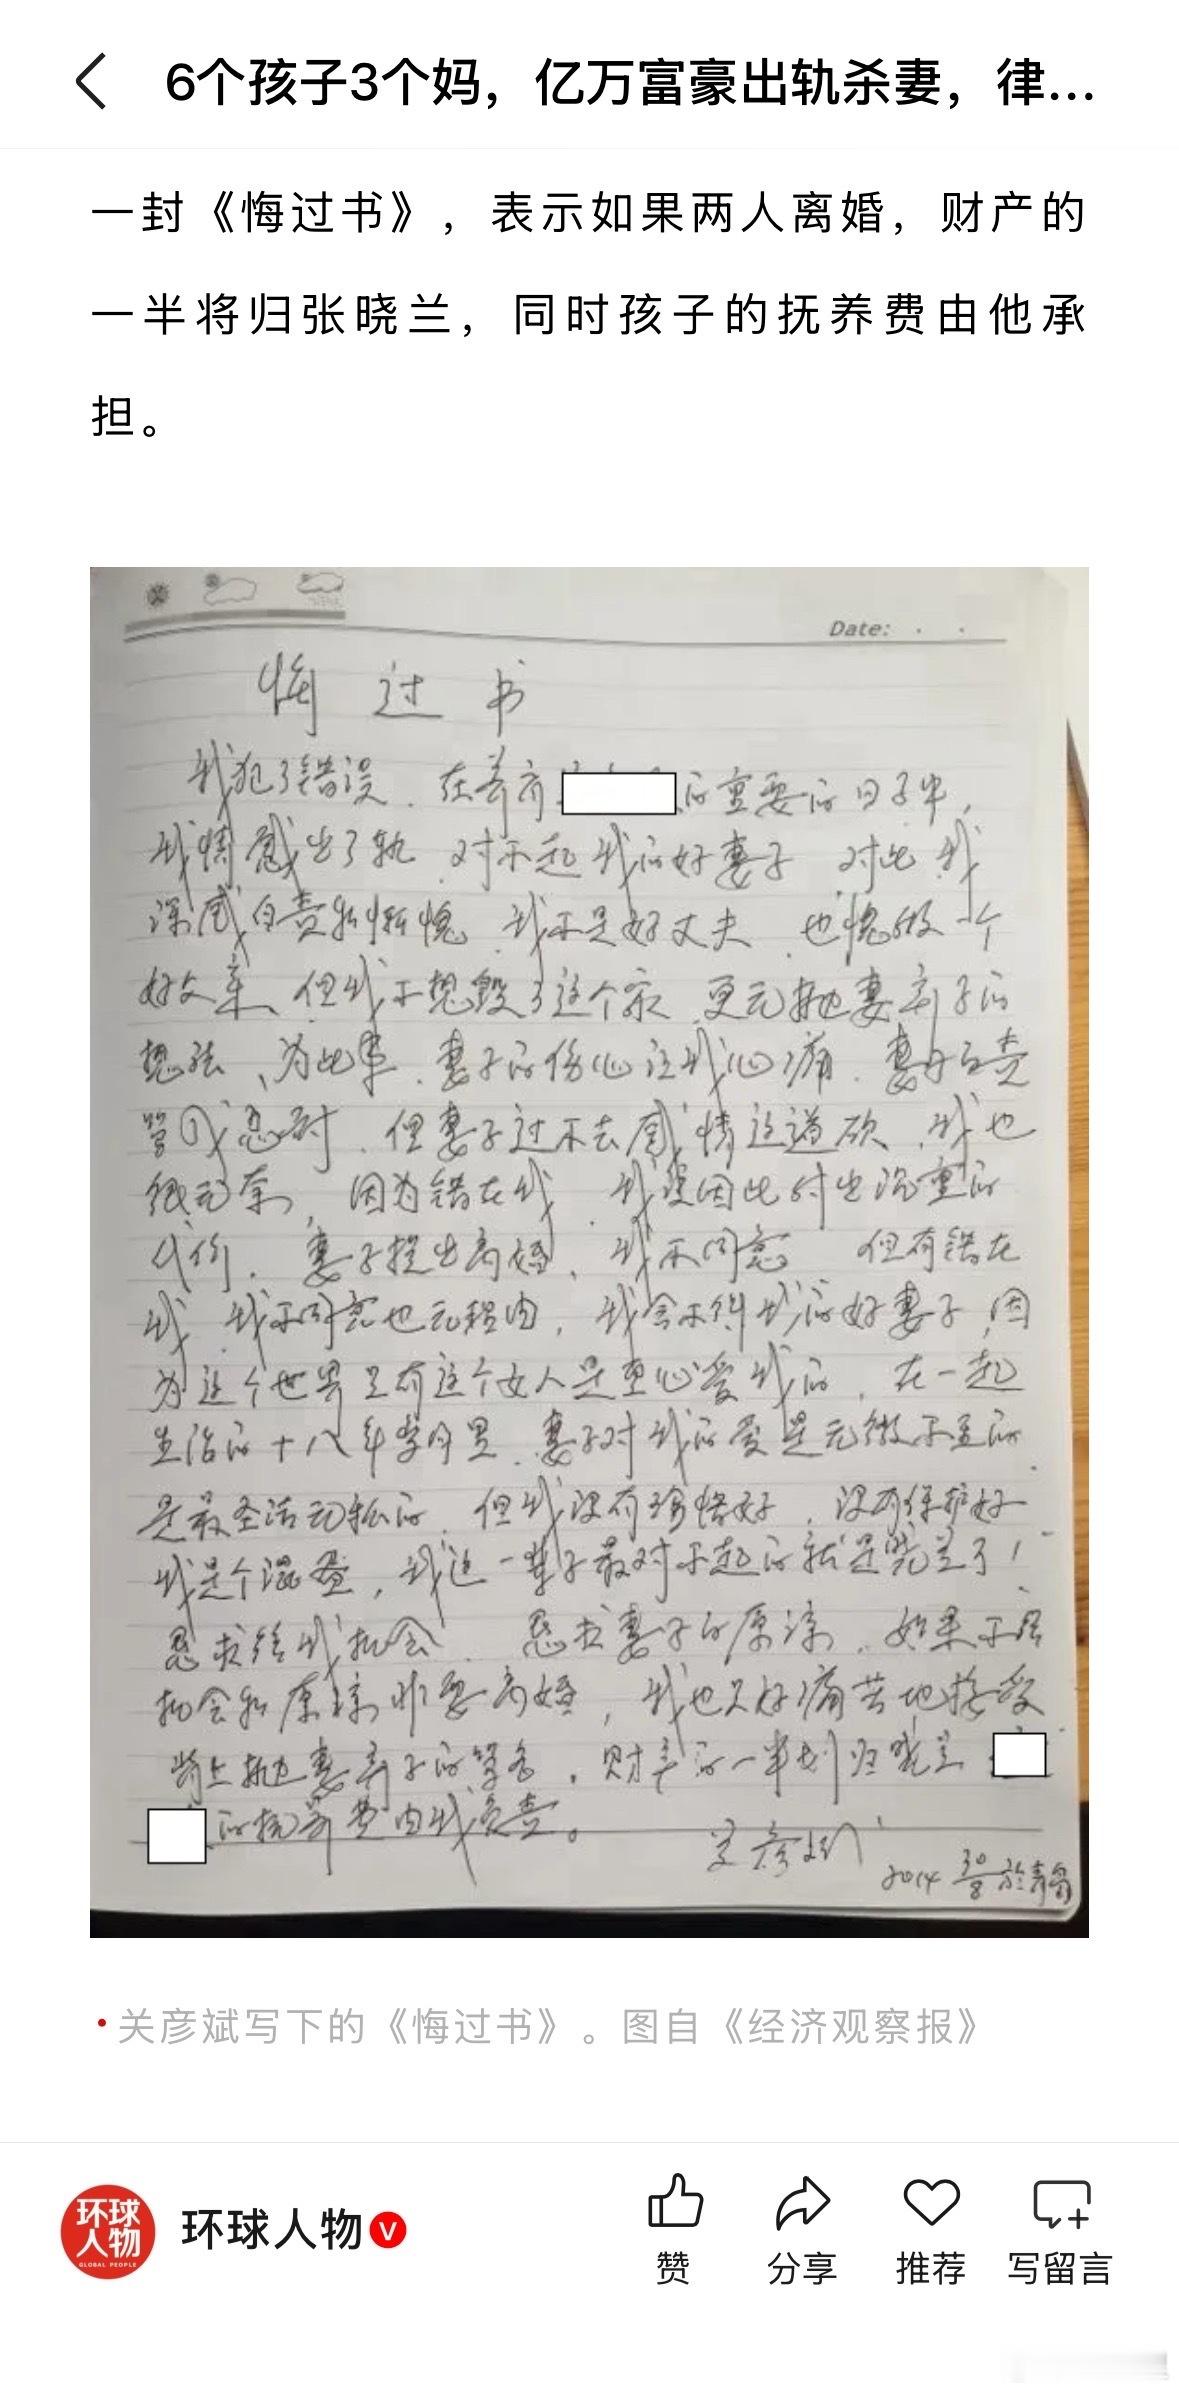 6个孩子3个妈，亿万富豪出轨杀妻，律...
一封《悔过书》，表示如果两人离婚，财产的
一半将归张晓兰，同时孩子的抚养费由他承
担。
Date:
悔过书
我犯了错误．在养育 的重要的日子中，
我情感出了轨 对不起我的好妻子 对此我
深感自责和惭愧 我不是好丈夫 也愧做一个
好父亲、但我不想毁了这个家 更无抛妻弃子的
想法、为此事．妻子的伤心让我心痛．妻子的责
忍耐．但妻子过不去感情这道砍．我也
很无奈，因为错在我．我没因此付出沉重的
代价．妻子提出离婚、我不同意 但有错在
我．我不同意也无理由，我舍不得我的好妻子，因
为这个世界只有这个女人是真心爱我的．在一起
生活的十八年岁月里．妻子对我的爱是无微不至的
是最圣洁无私的．但我没有珍惜好．没有保护好
我是个混蛋，我这一辈子最对不起的就是晓兰了！
恳求给我机会．恳求妻子的原谅．如果不给
机会和原谅非要离婚，我也只好痛苦地接受
背上抛妻弃子的罪名．财产的一半划归晓兰
的抚养费由我负责。
关彦斌
2014 30/8 於青岛
关彦斌写下的《悔过书》。图自《经济观察报》
环球人物
GLOBAL PEOPLE
环球人物 V
赞 分享 推荐 写留言